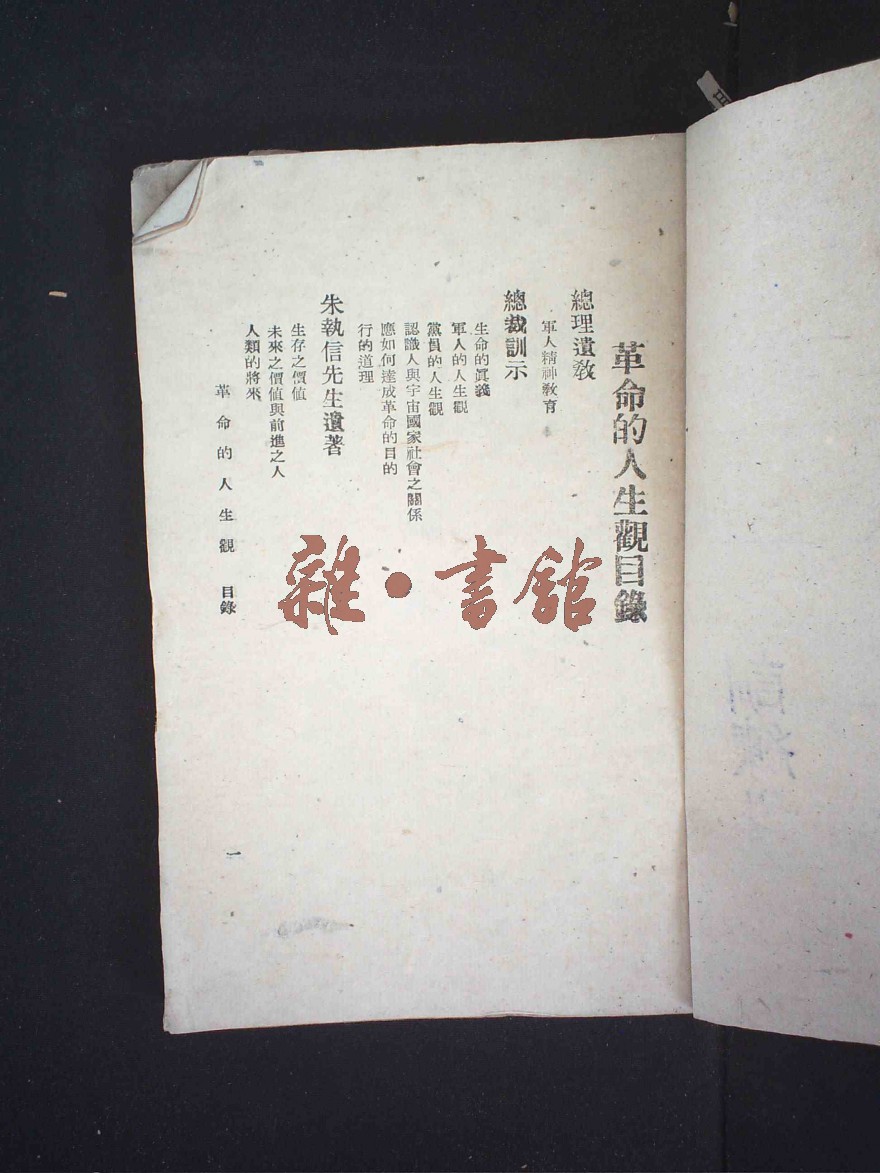 革命的人生觀目錄
總理遺教
軍人精神教育
總裁訓示
生命的眞義
軍人的人生觀
黨員的人生觀
認識人與宇宙國家社會之關係
應如何達成革命的目的
行的道理
朱執信先生遺著
生存之價值
未來之價值與前進之人
人類的將來
革命的人生觀 目錄
一
雜·書館